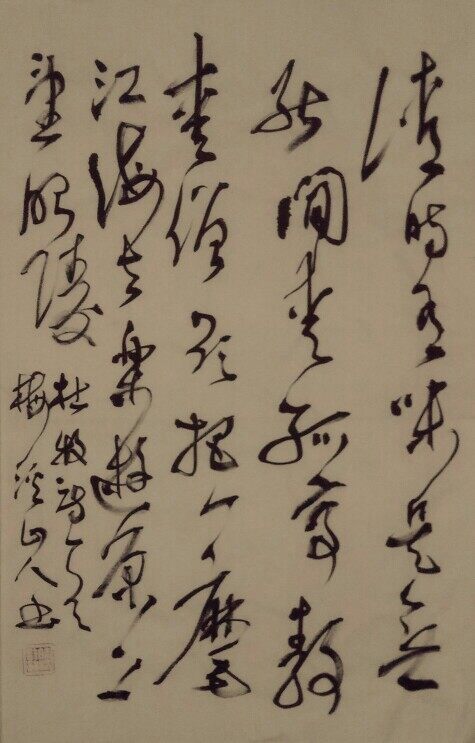 清時有味是無
能閒愛孤雲静
愛僧欲把一麾
江海去樂遊原上
望昭陵
杜牧詩一首
梅溪山人書